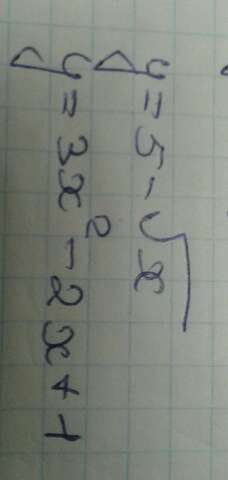 y = 5 - √x
y = 3x² - 2x + 1